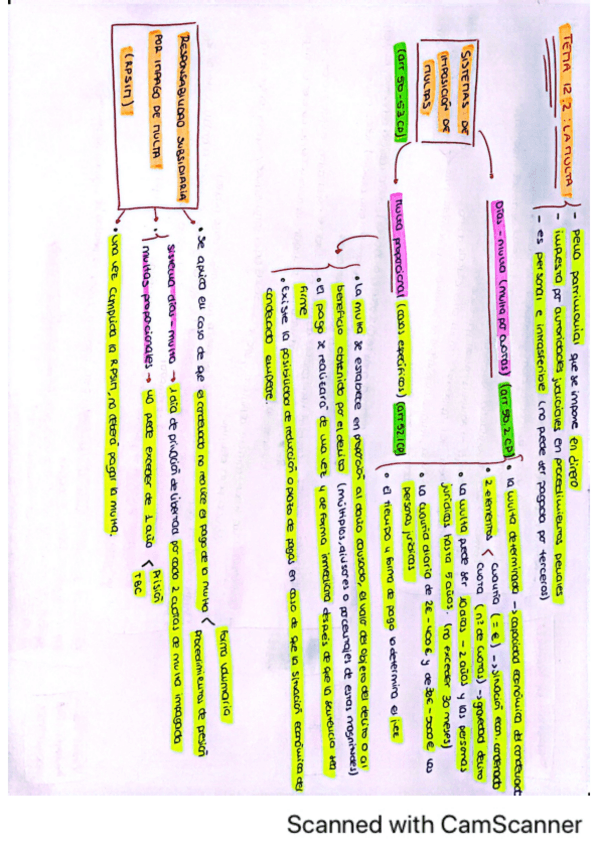 TEMA 12.2: LA MULTA
- pena patrimonial que se impone en dinero
- impuesta por autoridades judiciales en procedimientos penales
- es personal e intrasferible (no puede ser pagada por terceros)
SISTEMAS DE
IMPOSICIÓN DE
MULTAS
(art 50-53 CP)
Días-multa (multa por cuotas) (art 50.2 CP)
• la multa determinada → capacidad económica del condenado
• 2 elementos < cuantía (= €) → situación econ. condenado
cuota (nº de cuotas) → gravedad delito
• La multa puede ser 10 días - 2 años y las personas
jurídicas hasta 5 años. (no exceder 30 meses)
• La cuantía diaria de 2€ - 400€ y de 30€ - 5000€ las
personas jurídicas
• el tiempo y forma de pago lo determina el juez
multa proporcional (casos específicos) (art 52.1 CP)
• La multa se establece en proporción al daño causado, el valor del objeto del delito o al
beneficio obtenido por el delito (múltiplos, divisores o porcentajes de estas magnitudes)
• el pago se realizará de una vez y de forma inmediata después de que la sentencia sea
firme
• Existe la posibilidad de reducción o pacto de pagos en caso de que la situación económica del
condenado empeore.
RESPONSABILIDAD SUBSIDIARIA
POR IMPAGO DE MULTA
(RPSIM)
• Se aplica en caso de que el condenado no realice el pago de la multa < forma voluntaria
procedimientos de presión
• sistema días-multa → 1 día de privación de libertad por cada 2 cuotas de multa impagada
multas proporcionales → no puede exceder de 1 año < Prisión
TBC
• una vez cumplida la RPSIM, no deberá pagar la multa.
Scanned with CamScanner